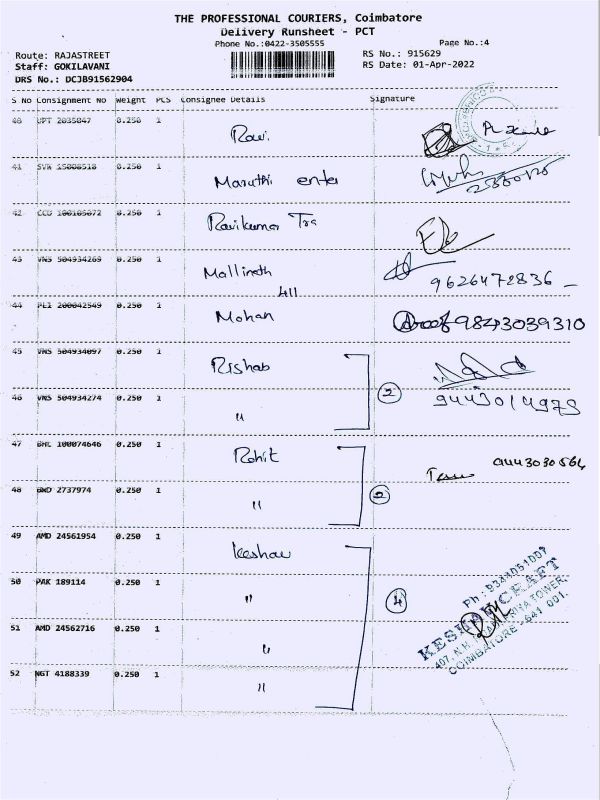 THE PROFESSIONAL COURIERS, Coimbatore
Delivery Runsheet - PCT
Phone No.:0422-3505555
Page No.:4
Route: RAJASTREET
RS No.: 915629
Staff: GOKILAVANI
RS Date: 01-Apr-2022
DRS No.: DCJB91562904
S No Consignment No Weight PCS Consignee Details Signature
40 UPT 2035047 0.250 1 Ravi
41 SVK 15008518 0.250 1 Maruthi enter
42 CCU 100105072 0.250 1 Ravikumar Tra
43 VNS 504934269 0.250 1 Mallinath 9626472836
411
44 PLI 200042549 0.250 1 Mohan 9843039310
45 VNS 504934097 0.250 1 Rishab
2
46 VNS 504934274 0.250 1 " 9443014979
47 BHL 100074646 0.250 1 Rohit 9443030564
48 BWD 2737974 0.250 1 " 2
49 AMD 24561954 0.250 1 Keshav
50 PAK 189114 0.250 1 " 4
51 AMD 24562716 0.250 1 "
52 NGT 4188339 0.250 1 "
Ph : 9344051007
KESHAV CRAFT
COIMBATORE - 641 001.